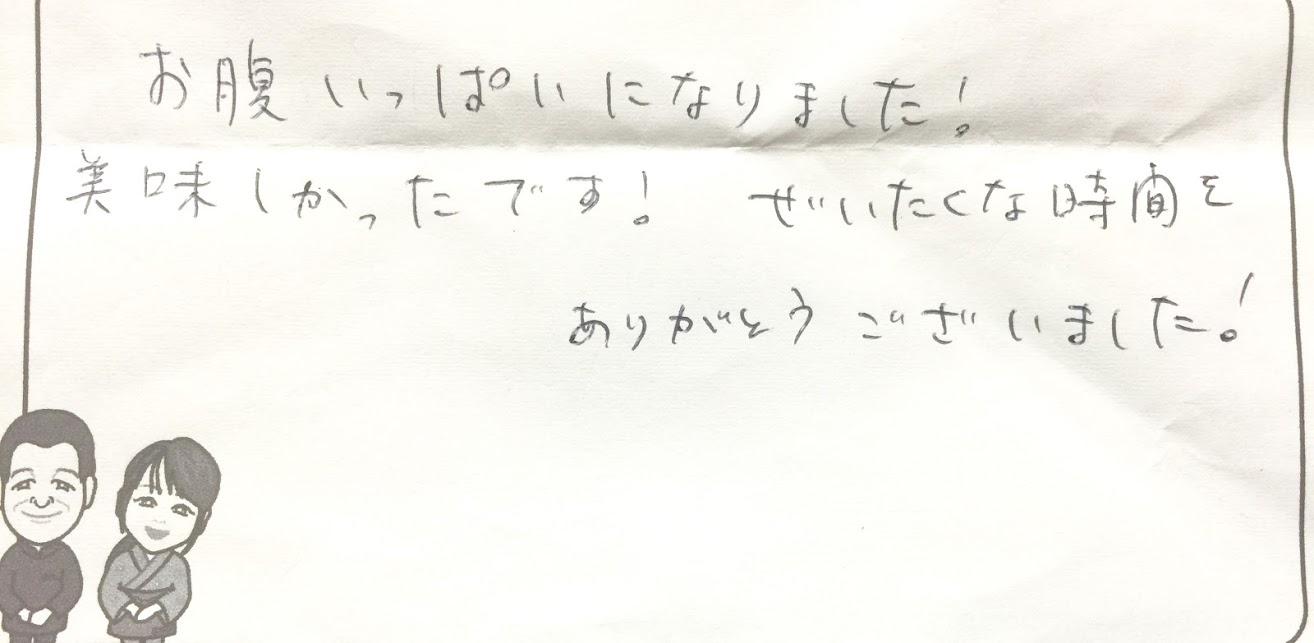 お腹いっぱいになりました!
美味しかったです! ぜいたくな時間を
ありがとうございました!